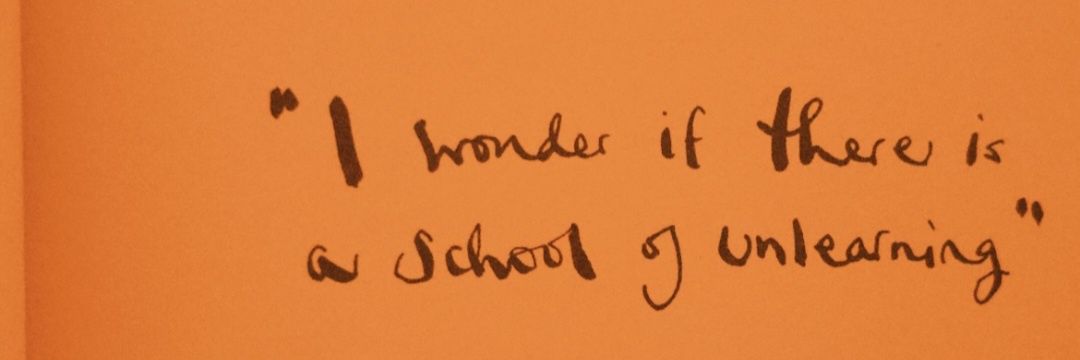 "I wonder if there is
a school of unlearning"